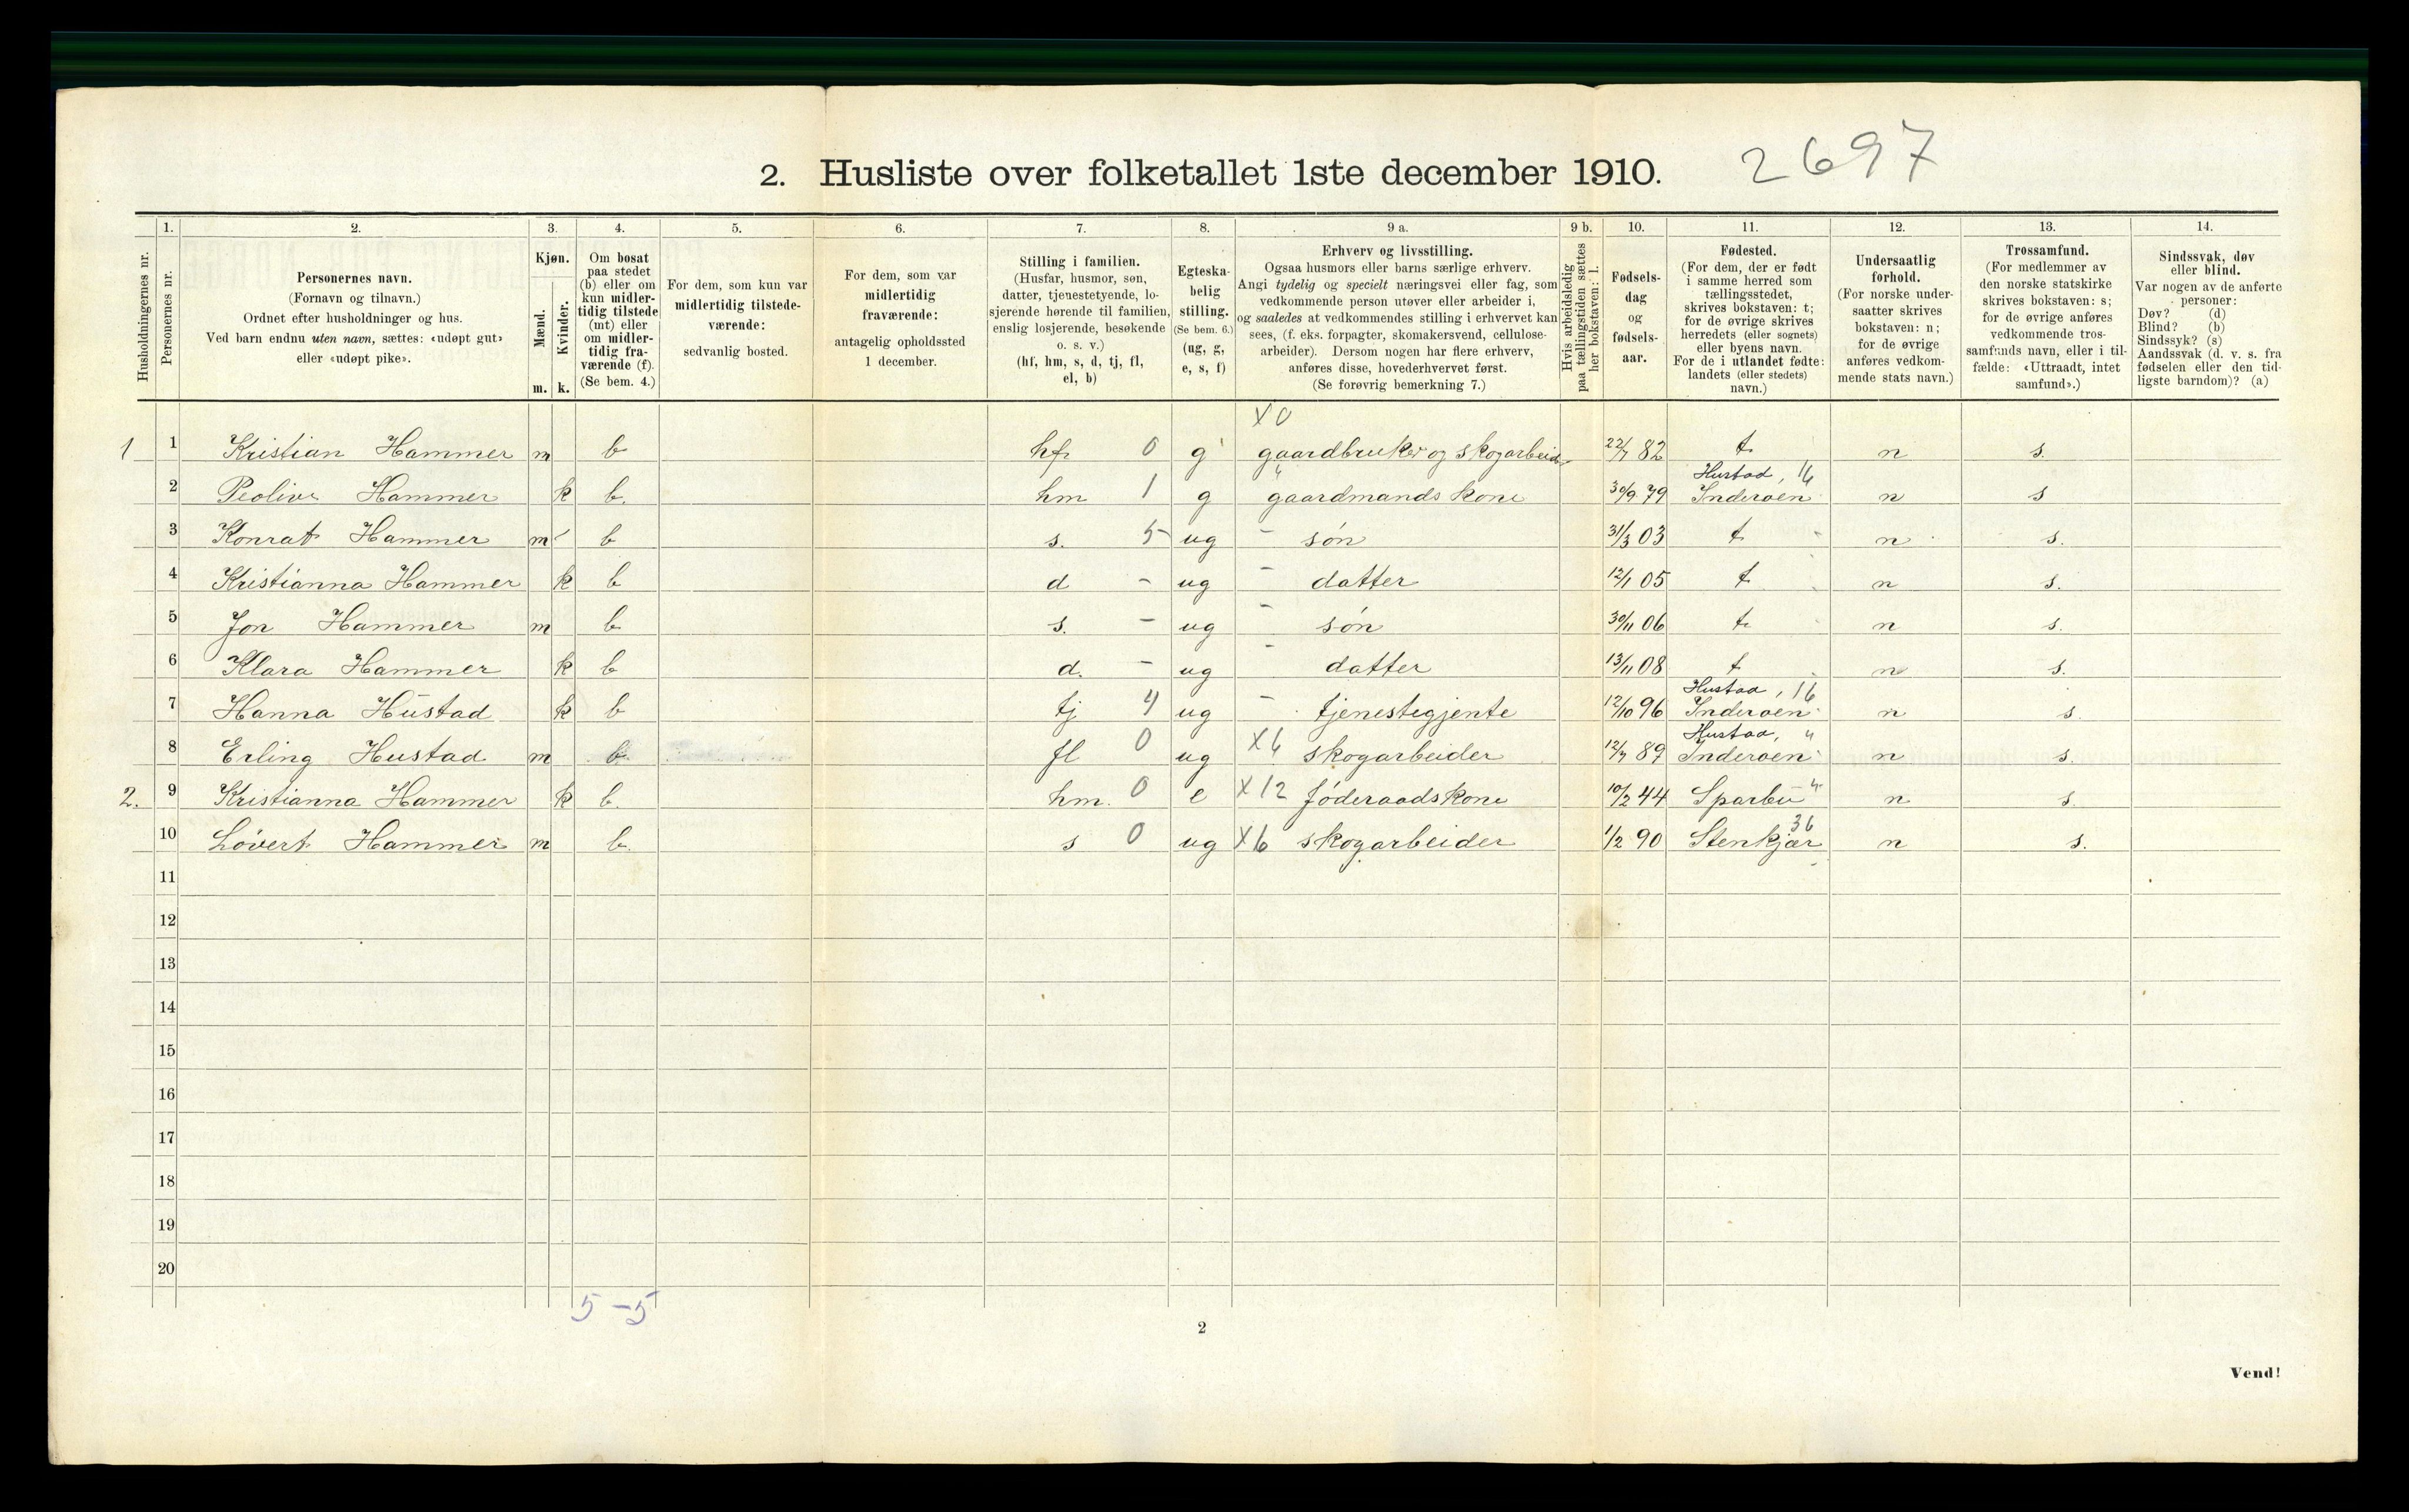 2. Husliste over folketallet 1ste december 1910. 2697
1. 2. 3. 4. 5. 6. 7. 8. 9 a. 9 b. 10. 11. 12. 13. 14.
Husholdningernes nr.
Personernes nr.
Personernes navn.
(Fornavn og tilnavn.)
Ordnet efter husholdninger og hus.
Ved barn endnu uten navn, sættes: «udøpt gut»
eller «udøpt pike».
Kjøn.
Mænd.
Kvinder.
m. k.
Om bosat
paa stedet
(b) eller om
kun midler-
tidig tilstede
(mt) eller
om midler-
tidig fra-
værende (f).
(Se bem. 4.)
For dem, som kun var
midlertidig tilstede-
værende:
sedvanlig bosted.
For dem, som var
midlertidig
fraværende:
antagelig opholdssted
1 december.
Stilling i familien.
(Husfar, husmor, søn,
datter, tjenestetyende, lo-
sjerende hørende til familien,
enslig losjerende, besøkende
o. s. v.)
(hf, hm, s, d, tj, fl,
el, b)
Egteska-
belig
stilling.
(Se bem. 6.)
(ug, g,
e, s, f)
Erhverv og livsstilling.
Ogsaa husmors eller barns særlige erhverv.
Angi tydelig og specielt næringsvei eller fag, som
vedkommende person utøver eller arbeider i,
og saaledes at vedkommendes stilling i erhvervet kan
sees, (f. eks. forpagter, skomakersvend, cellulose-
arbeider). Dersom nogen har flere erhverv,
anføres disse, hovederhvervet først.
(Se forøvrig bemerkning 7.)
Hvis arbeidsledig
paa tællingstiden sættes
her bokstaven: l.
Fødsels-
dag
og
fødsels-
aar.
Fødested.
(For dem, der er født
i samme herred som
tællingsstedet,
skrives bokstaven: t;
for de øvrige skrives
herredets (eller sognets)
eller byens navn.
For de i utlandet fødte:
landets (eller stedets)
navn.)
Undersaatlig
forhold.
(For norske under-
saatter skrives
bokstaven: n;
for de øvrige
anføres vedkom-
mende stats navn.)
Trossamfund.
(For medlemmer av
den norske statskirke
skrives bokstaven: s;
for de øvrige anføres
vedkommende tros-
samfunds navn, eller i til-
fælde: «Uttraadt, intet
samfund».)
Sindssvak, døv
eller blind.
Var nogen av de anførte
personer:
Døv? (d)
Blind? (b)
Sindssyk? (s)
Aandssvak (d. v. s. fra
fødselen eller den tid-
ligste barndom)? (a)
X 0
1 1 Kristian Hammer m b hf 0 g gaardbruker og skogarbeider 22/7 82 t n s.
Hustad, 16
2 Peolive Hammer k b. hm 1 g gaardmands kone 30/9 79 Inderøen n s
3 Konrat Hammer m b s. 5 ug - søn 31/3 03 t n s.
4 Kristianna Hammer k b d - ug - datter 12/1 05 t n s.
5 Jon Hammer m b s. - ug - søn 30/11 06 t n s.
6 Klara Hammer k b d. - ug - datter 13/11 08 t n s.
Hustad, 16
7 Hanna Hustad k b tj 4 ug - tjenestegjente 12/10 96 Inderøen n s
Hustad, "
8 Erling Hustad m b fl 0 ug X6 skogarbeider 12/7 89 Inderøen n s.
2. 9 Kristianna Hammer k b. hm. 0 e X12 føderaadskone 10/2 44 Sparbu " n s.
36
10 Lövert Hammer m b. s 0 ug X6 skogarbeider 1/2 90 Stenkjær n s.
11
12
13
14
15
16
17
18
19
20
5 - 5
2
Vend!